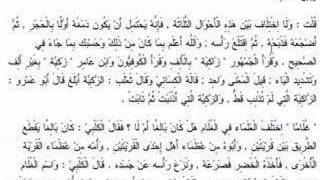 قُلْتُ : وَلَا اخْتِلَافَ بَيْنَ هَذِهِ الْأَحْوَالِ الثَّلَاثَةِ ، فَإِنَّهُ يُحْتَمَلُ أَنْ يَكُونَ دَمَغَهُ أَوَّلًا بِالْحَجَرِ ، ثُمَّ
أَضْجَعَهُ فَذَبَحَهُ ، ثُمَّ اقْتَلَعَ رَأْسَهُ ; وَاللَّهُ أَعْلَمُ بِمَا كَانَ مِنْ ذَلِكَ وَحَسْبُكَ بِمَا جَاءَ فِي
الصَّحِيحِ . وَقَرَأَ الْجُمْهُورُ " زَاكِيَةً " بِالْأَلِفِ وَقَرَأَ الْكُوفِيُّونَ وَابْنُ عَامِرٍ " زَكِيَّةً " بِغَيْرِ أَلِفٍ
وَتَشْدِيدِ الْيَاءِ ; قِيلَ الْمَعْنَى وَاحِدٌ ; قَالَهُ الْكِسَائِيُّ وَقَالَ ثَعْلَبٌ : الزَّكِيَّةُ أَبْلَغُ قَالَ أَبُو عَمْرٍو :
الزَّاكِيَةُ الَّتِي لَمْ تُذْنِبْ قَطُّ ، وَالزَّكِيَّةُ الَّتِي أَذْنَبَتْ ثُمَّ تَابَتْ .
" غُلَامًا " اخْتَلَفَ الْعُلَمَاءُ فِي الْغُلَامِ هَلْ كَانَ بَالِغًا أَمْ لَا ؟ فَقَالَ الْكَلْبِيُّ : كَانَ بَالِغًا يَقْطَعُ
الطَّرِيقَ بَيْنَ قَرْيَتَيْنِ ، وَأَبُوهُ مِنْ عُظَمَاءِ أَهْلِ إِحْدَى الْقَرْيَتَيْنِ ، وَأُمُّهُ مِنْ عُظَمَاءِ الْقَرْيَةِ
، فَأَخَذَهُ الْخَضِرُ فَصَرَعَهُ ، وَنَزَعَ رَأْسَهُ عَنْ جَسَدِهِ . قَالَ الْكَلْبِيُّ : وَاسْمُ الْغُلَامِ